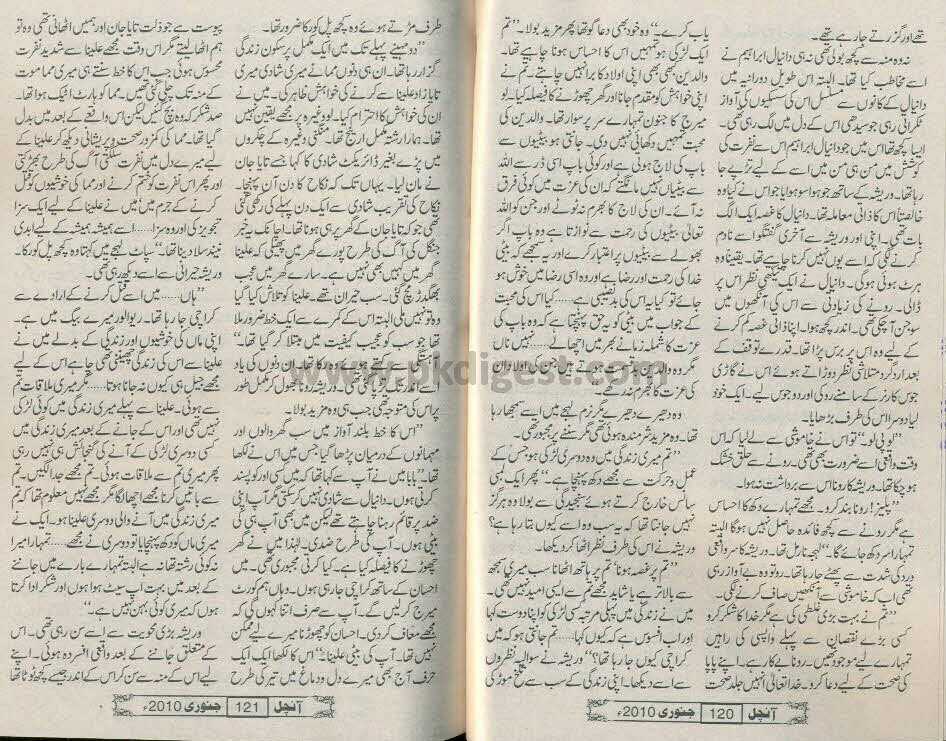 تھے اور گزرتے جا رہے تھے۔
نہ وہ منہ سے کچھ بولی تھی نہ ہی دانیال ابراہیم نے
اسے مخاطب کیا تھا۔ البتہ اس طویل دورانیہ میں
دانیال کے کانوں سے مسلسل اس کی سسکیوں کی آواز
ٹکراتی رہی جو سیدھی اس کے دل میں لگ رہی تھی۔
ایسا کچھ تھا اس میں جو دانیال ابراہیم اس سے نفرت کی
کوشش میں سن ہی من میں اسے کے لیے تڑپے جا
رہا تھا۔ وریشہ کے ساتھ جو ہوا سو ہوا یا جو اس نے کیا وہ
خالصتاً اس کا ذاتی معاملہ تھا۔ دانیال کا غصہ ایک الگ
بات تھی۔ اپنی اور وریشہ سے آخری گفتگو اسے نادم
کرنے لگی کہ اسے یوں نہیں کرنا چاہیے تھا۔ یقیناً وہ
ہرٹ ہوئی ہوگی۔ دانیال نے ایک نظر اس پر
ڈالی۔ رونے کی زیادتی سے اس کی آنکھوں میں
سوجن آ چکی تھی۔ اندر کچھ ہوا۔ اپنا ذاتی غصہ کم کرنے
کے لیے وہ اس پر برس پڑا تھا۔ قدرے توقف کے
بعد ارد گرد متلاشی نظر دوڑاتے ہوئے اس نے گاڑی
جوس کارنر کے سامنے روکی اور دو جوس لیے۔ ایک خود
لیا دوسرا اس کی طرف بڑھایا۔
"لو پی لو" تو اس نے خاموشی سے لے لیا کہ اس
وقت واقعی اسے ضرورت بھی تھی۔ رونے سے حلق خشک
ہو چکا تھا۔ وریشہ کا رونا اس سے برداشت نہ ہوا۔
"پلیز! رونا بند کرو۔ مجھے تمہارے دکھ کا احساس
ہے مگر رونے سے کچھ فائدہ حاصل نہیں ہوگا البتہ
تمہارا سر دکھ جائے گا۔" لہجہ نارمل تھا۔ وریشہ کا سر واقعی
درد کی شدت سے پھٹے جا رہا تھا۔ رو تو وہ بے آواز رہی
تھی اب کہ خاموشی سے آنکھیں صاف کرنے لگی۔
"تم نے بہت بڑی غلطی کی ہے مگر خدا کا شکر کرو
کسی بڑے نقصان سے پہلے واپسی کی راہیں
تمہارے لیے موجود تھیں۔ رونا بے کار ہے۔ اپنے پاپا
کی صحت کے لیے دعا کرو۔ خدا تعالیٰ انہیں جلد صحت
یاب کرے۔" وہ خود بھی دعا گو تھا پھر مزید بولا۔ "تم
ایک لڑکی ہو تمہیں اس کا احساس ہونا چاہیے تھا۔
والدین کبھی بھی اپنی اولاد کا برا نہیں چاہتے۔ تم نے
اپنی خواہش کو مقدم جانا اور گھر چھوڑنے کا فیصلہ کیا۔ لو
میرج کا جنون تمہارے سر پر سوار تھا۔ والدین کی
محبت نہیں دکھائی نہیں دی۔ جانتی ہو بیٹیوں سے
باپ کی لاج ہوتی ہے اور کوئی باپ اسی ڈر سے اللہ
سے بیٹیاں نہیں مانگتے کہ ان کی عزت میں کوئی فرق
نہ آئے۔ ان کی لاج کا بھرم نہ ٹوٹے اور جن کو اللہ
تعالیٰ بیٹیوں کی رحمت سے نوازتا ہے وہ باپ اگر
بھولے سے بیٹیوں پر اعتبار کرے اور یہ سمجھے کہ بیٹی
خدا کی رحمت اور رضا ہے اور وہ اسی رضا میں خوش ہو
جائے تو کیا یہ اس کی بدنصیبی ہے..... کیا اس کی محبت
کے جواب میں بیٹی کو یہ حق پہنچتا ہے کہ وہ باپ کی
عزت کا شملہ زمانے بھر میں اچھالے..... نہیں ناں
مگر وہ والدین بدنصیب ہوتے ہیں جن کی اولاد ان
کی عزت کا بھرم نہ رکھے۔"
وہ دھیرے دھیرے مگر نرم لہجے میں اسے سمجھا رہا
تھا۔ وہ مزید شرمندہ ہوئی تھی مگر سننے پر مجبور تھی۔
"تم میری زندگی میں وہ دوسری لڑکی ہو جس کے
عمل و حرکت سے مجھے دکھ پہنچا ہے۔" پھر ایک لمبی
سانس خارج کرتے ہوئے سنجیدگی سے بولا وہ ہرگز
نہیں جانتا تھا کہ یہ سب وہ اسے کیوں بتا رہا ہے؟
وریشہ نے اس کی طرف نظر اٹھا کر دیکھا۔
"تم پر غصہ ہونا، تم پر ہاتھ اٹھانا سب میری سمجھ
سے بالاتر ہے یا شاید مجھے تم سے ایسی امید نہیں تھی۔
میں نے زندگی میں پہلی مرتبہ کسی لڑکی کو اپنا دوست کہا
اور اب افسوس ہے کہ کیوں کہا..... تم جانتی ہو کہ میں
کراچی کیوں جا رہا تھا؟" وریشہ نے سوالیہ نظروں
سے اسے دیکھا۔ اپنی زندگی کے سب سے تلخ موڑ کی
آنچل 120 جنوری 2010ء
طرف مڑتے ہوئے وہ کچھ پل کو رکا ضرور تھا۔
"دو مہینے پہلے تک میں ایک مکمل پرسکون زندگی
گزار رہا تھا۔ ان ہی دنوں ممانے میری شادی میری
تایا زاد علینا سے کرنے کی خواہش ظاہر کی۔ میں نے
ان کی خواہش کا احترام کیا۔ لو وغیرہ پر مجھے یقین نہیں
تھا۔ ہمارا رشتہ مکمل ارینج تھا۔ منگنی وغیرہ کے چکروں
میں پڑے بغیر ڈائریکٹ شادی کا کہا جسے تایا جان
نے مان لیا۔ یہاں تک کہ نکاح کا دن آن پہنچا۔
نکاح کی تقریب شادی سے ایک دن پہلے کی رکھی گئی
تھی جو کہ تایا جان کے گھر پر ہی ہونا تھا۔ اچانک یہ خبر
جنگل کی آگ کی طرح پورے گھر میں پھیل گئی کہ علینا
گھر میں نہیں بھی نہیں ہے۔ سارے گھر میں عجب
بھگدڑ مچ گئی۔ سب حیران تھے۔ علینا کو تلاش کیا گیا
وہ تو نہیں ملی البتہ اس کے کمرے سے ایک خط ضرور ملا
تھا جو سب کو عجب کیفیت میں مبتلا کر گیا تھا۔"
اسے اندر تک تڑپا گئی تھی۔ وریشہ رونا بند کر مکمل طور
پر اس کی متوجہ تھی جب ہی وہ مزید بولا۔
"اس کا خط بلند آواز میں سب گھر والوں اور
مہمانوں کے درمیان پڑھا گیا جس میں اس نے لکھا
تھا۔ "بابا میں نے آپ سے کہا تھا کہ میں کسی اور کو پسند
کرتی ہوں۔ دانیال سے شادی نہیں کر سکتی مگر آپ اپنی
ضد پر قائم رہنا چاہتے تھے لیکن میں بھی آپ ہی کی
بیٹی ہوں۔ آپ کی طرح ضدی۔ لہٰذا میں نے گھر
چھوڑنے کا فیصلہ کیا ہے۔ کیا کرتی مجبوری تھی۔ میں
احسان کے ساتھ کراچی جا رہی ہوں۔ وہاں ہم کورٹ
میرج کر لیں گے۔ آپ سے صرف اتنا کہوں گی کہ
مجھے معاف کر دی۔ احسان کو چھوڑنا میرے لیے ممکن
نہیں تھا۔ آپ کی بیٹی علینا۔" اس کا لکھا ایک ایک
حرف آج بھی میرے دل و دماغ میں تیر کی طرح
پیوست ہے جو ذلت تایا جان اور ہمیں اٹھانی تھی وہ تو
ہم اٹھا لیتے مگر اس وقت مجھے علینا سے شدید نفرت
محسوس ہوئی جب اس کا خط سنتے ہی میری مما موت
کے منہ تک چلی گئی تھیں۔ مما کو ہارٹ اٹیک ہوا تھا۔
صد شکر کہ وہ بچ گئیں لیکن اس واقعے کے بعد میں بدل
گیا تھا۔ مما کی کمزور صحت و پریشانی دیکھ کر علینا کے
لیے میرے دل میں نفرت سلگتی آگ کی طرح بھڑکتی
اور پھر اس نفرت کو ختم کرنے اور مما کی خوشیوں کو قتل
کرنے کے جرم میں میں نے علینا کے لیے ایک سزا
تجویز کی اور وہ سزا..... اسے ہمیشہ ہمیشہ کے لیے ابدی
نیند سلا دینا تھا۔" سپاٹ لہجے میں کہتا وہ کچھ پل کو رکا۔
وریشہ حیرانی سے اسے دیکھ رہی تھی۔
"ہاں..... میں اسے قتل کرنے کے ارادے سے
کراچی جا رہا تھا۔ ریوالور میرے بیگ میں ہے۔
اپنی ماں کی خوشیوں اور زندگی کے بدلے میں نے
علینا سے اس کی زندگی چھیننی تھی چاہے اس کے لیے
مجھے جیل ہی کیوں نہ جانا ہوتا..... مگر میری ملاقات تم
سے ہوئی۔ علینا سے پہلے میری زندگی میں کوئی لڑکی
نہیں تھی اور اس کے جانے کے بعد میری زندگی میں
کسی دوسری لڑکی کے آنے کی گنجائش ہی نہیں رہی
پھر میری تم سے ملاقات ہوئی۔ تم مجھے جدا لگیں۔ تم
سے باتیں کرنا مجھے اچھا لگا مگر مجھے نہیں معلوم تھا کہ تم
میری زندگی میں آنے والی دوسری علینا ہو۔ ایک نے
میری ماں کو دکھ پہنچایا تو دوسری نے مجھے..... تمہارا میرا
نہ کوئی رشتہ تھا نہ ہے البتہ تمہارے بارے میں جاننے
کے بعد میں بہت اپ سیٹ ہوا ہوں اور شکر ادا کرتا
ہوں کہ میری کوئی بہن نہیں ہے۔"
وریشہ بڑی محویت سے اسے سن رہی تھی۔ اس
کے متعلق جاننے کے بعد واقعی افسردہ ہوئی۔ اپنے
لیے اس کے منہ سے سن کر اس کے اندر جیسے کچھ ٹوٹا تھا
آنچل 121 جنوری 2010ء
www.pkdigest.com